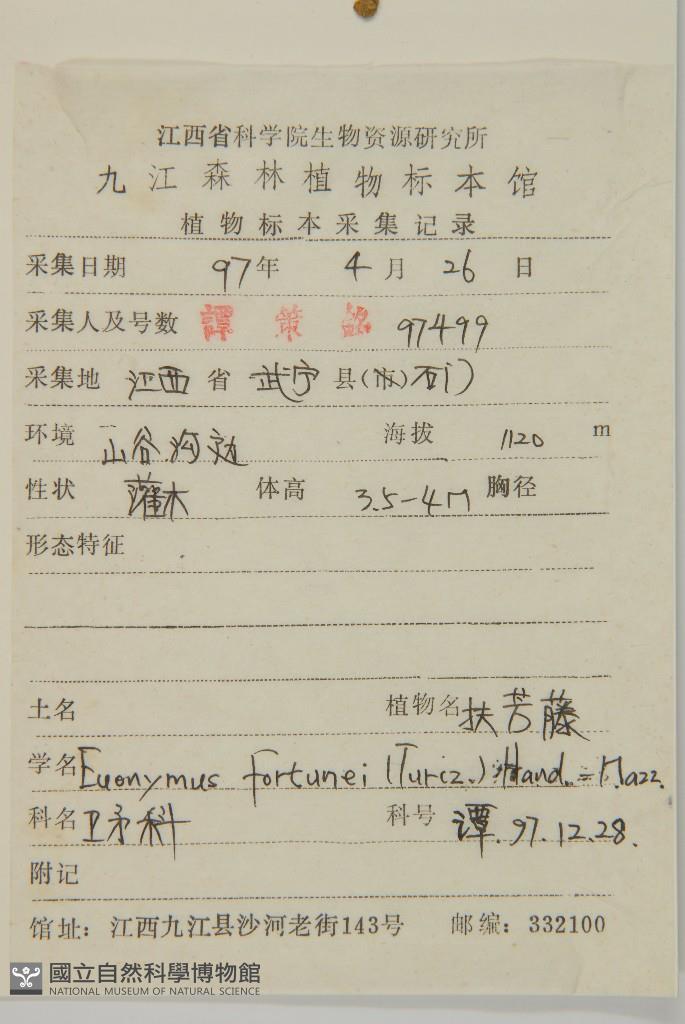 江西省科学院生物资源研究所
九江森林植物标本馆
植物标本采集记录
采集日期 97年 4月 26日
采集人及号数 譚策銘 97499
采集地 江西省 武宁 县(市)石门
环境 山谷沟边 海拔 1120 m
性状 灌木 体高 3.5-4M 胸径
形态特征
土名 植物名 扶芳藤
学名 Euonymus fortunei (Turcz.) Hand.=Mazz.
科名 卫矛科 科号 谭.97.12.28.
附记
馆址: 江西九江县沙河老街143号 邮编: 332100
國立自然科學博物館
NATIONAL MUSEUM OF NATURAL SCIENCE